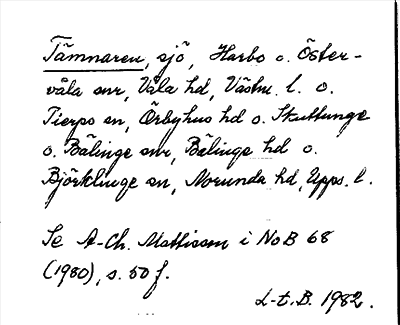 Tämnaren, sjö, Harbo o. Öster-
våla snr, Våla hd, Västm. l. o.
Tierps sn, Örbyhus hd o. Skuttunge
o. Bälinge snr, Bälinge hd o.
Björklinge sn, Norunda hd, Upps. l.
Se A-Ch. Mattisson i NoB 68
(1980), s. 50 f.
L-t. B. 1982.